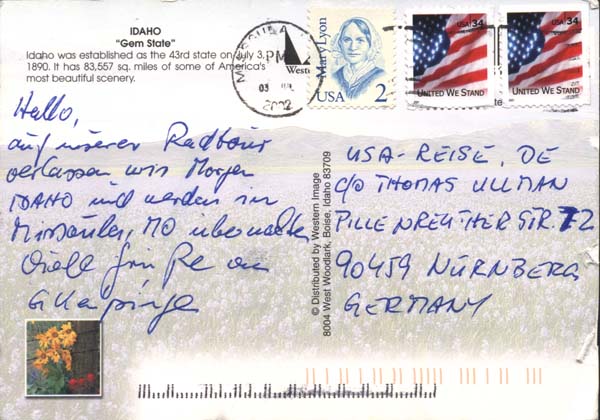 IDAHO
"Gem State"
Idaho was established as the 43rd state on July 3,
1890. It has 83,557 sq. miles of some of America's
most beautiful scenery.
MISSOULA
PM
2002
Mary Lyon
USA 2
USA 34
UNITED WE STAND
USA 34
UNITED WE STAND
Hello,
auf unserer Radtour
verlassen wir Morgen
IDAHO und werden in
Missoula, MO übernachten
Viele Grüße an
© Distributed by Western Image
8004 West Woodlark, Boise, Idaho 83709
USA-REISE, DE
C/O THOMAS ULLMAN
PILLENREUTHER STR. 72
90459 NÜRNBERG
GERMANY